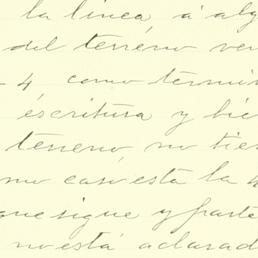 la línea, á alg
del terreno ver
4, como términ
escritura y bie
terreno, no tien
mo caso está la 4
que sigue y parte
no está aclarad